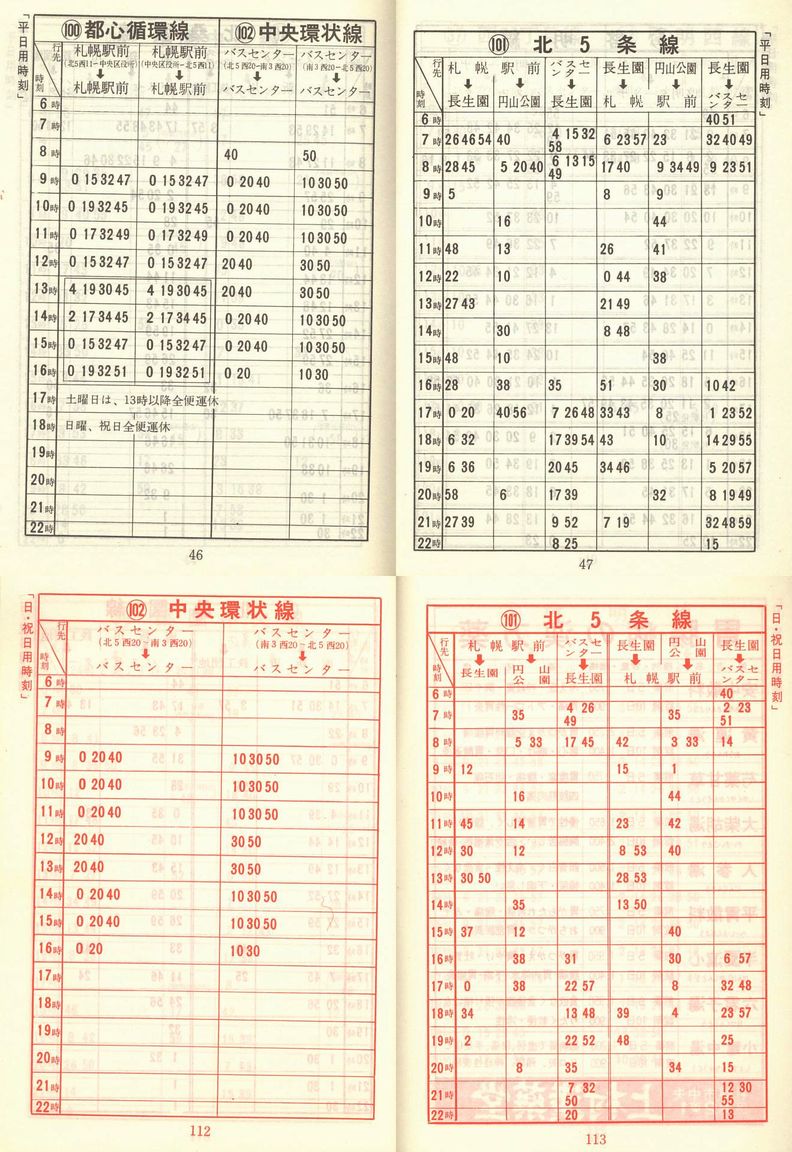 「平日用時刻」
⑩⓪ 都心循環線 ⑩② 中央環状線
行先 時刻
札幌駅前 (北5西11―中央区役所) ↓ 札幌駅前
札幌駅前 (中央区役所―北5西11) ↓ 札幌駅前
バスセンター (北5西20―南3西20) ↓ バスセンター
バスセンター (南3西20―北5西20) ↓ バスセンター
6時
7時
8時 40 50
9時 0 15 32 47 0 15 32 47 0 20 40 10 30 50
10時 0 19 32 45 0 19 32 45 0 20 40 10 30 50
11時 0 17 32 49 0 17 32 49 0 20 40 10 30 50
12時 0 15 32 47 0 15 32 47 20 40 30 50
13時 4 19 30 45 4 19 30 45 20 40 30 50
14時 2 17 34 45 2 17 34 45 0 20 40 10 30 50
15時 0 15 32 47 0 15 32 47 0 20 40 10 30 50
16時 0 19 32 51 0 19 32 51 0 20 10 30
17時 土曜日は、13時以降全便運休
18時 日曜、祝日全便運休
19時
20時
21時
22時
46
「平日用時刻」
⑩① 北5条線
行先 時刻
札幌駅前 ↓ 長生園 円山公園
バスセンター ↓ 長生園
長生園 円山公園 ↓ 札幌駅前
長生園 ↓ バスセンター
6時 40 51
7時 26 46 54 40 4 15 32 58 6 23 57 23 32 40 49
8時 28 45 5 20 40 6 13 15 49 17 40 9 34 49 9 23 51
9時 5 8 9
10時 16 44
11時 48 13 26 41
12時 22 10 0 44 38
13時 27 43 21 49
14時 30 8 48
15時 48 10 38
16時 28 38 35 51 30 10 42
17時 0 20 40 56 7 26 48 33 43 8 1 23 52
18時 6 32 17 39 54 43 10 14 29 55
19時 6 36 20 45 34 46 5 20 57
20時 58 6 17 39 32 8 19 49
21時 27 39 9 52 7 19 32 48 59
22時 8 25 15
47
「日・祝日用時刻」
⑩② 中央環状線
行先 時刻
バスセンター (北5西20―南3西20) ↓ バスセンター
バスセンター (南3西20―北5西20) ↓ バスセンター
6時
7時
8時
9時 0 20 40 10 30 50
10時 0 20 40 10 30 50
11時 0 20 40 10 30 50
12時 20 40 30 50
13時 20 40 30 50
14時 0 20 40 10 30 50
15時 0 20 40 10 30 50
16時 0 20 10 30
17時
18時
19時
20時
21時
22時
112
「日・祝日用時刻」
⑩① 北5条線
行先 時刻
札幌駅前 ↓ 長生園 円山公園
バスセンター ↓ 長生園
長生園 円山公園 ↓ 札幌駅前
長生園 ↓ バスセンター
6時 40
7時 35 4 26 49 35 2 23 51
8時 5 33 17 45 42 3 33 14
9時 12 15 1
10時 16 44
11時 45 14 23 42
12時 30 12 8 53 40
13時 30 50 28 53
14時 35 13 50
15時 37 12 40
16時 38 31 30 6 57
17時 0 38 22 57 8 32 48
18時 34 13 48 39 4 23 57
19時 2 22 52 48 25
20時 8 35 34 15
21時 7 32 50 12 30 55
22時 20 13
113